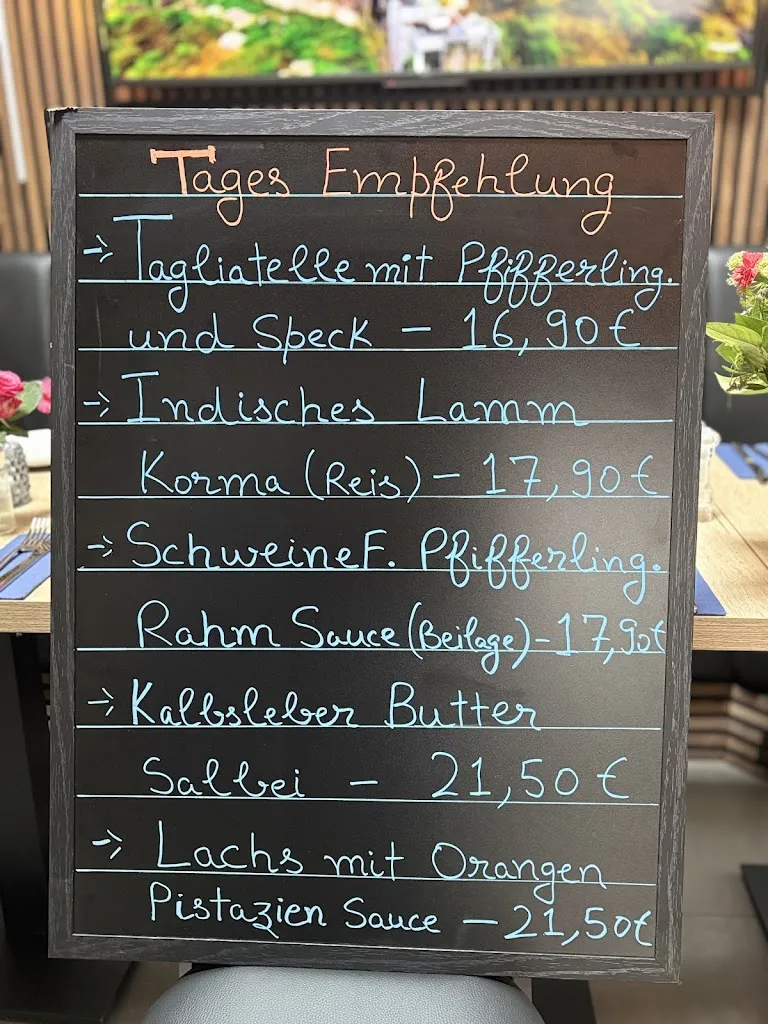 Tages Empfehlung
-> Tagliatelle mit Pfifferling.
und Speck - 16,90€
-> Indisches Lamm
Korma (Reis) - 17,90€
-> SchweineF. Pfifferling.
Rahm Sauce (Beilage) - 17,90€
-> Kalbsleber Butter
Salbei - 21,50€
-> Lachs mit Orangen
Pistazien Sauce - 21,50€